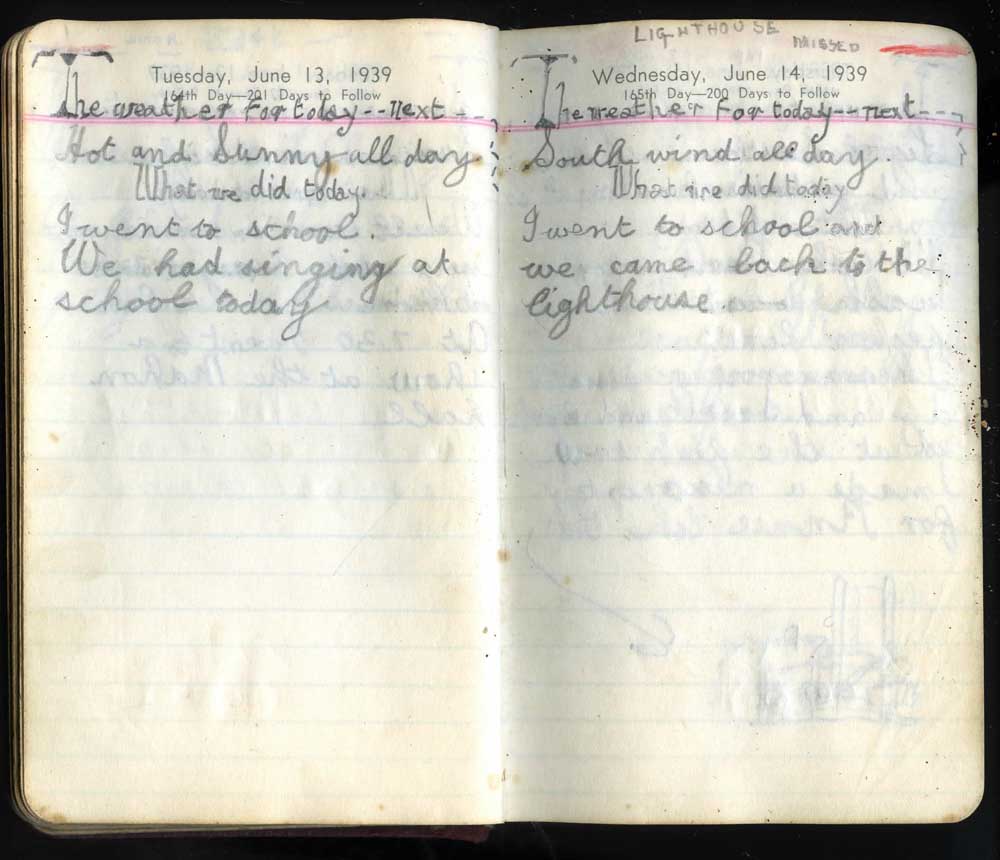 Tuesday, June 13, 1939
164th Day—201 Days to Follow
The weather for today--next---
Hot and Sunny all day.
What we did today.
I went to school.
We had singing at
school today
LIGHTHOUSE
MISSED
Wednesday, June 14, 1939
165th Day—200 Days to Follow
The weather for today--next---
South wind all day.
What we did today
I went to school and
we came back to the
lighthouse